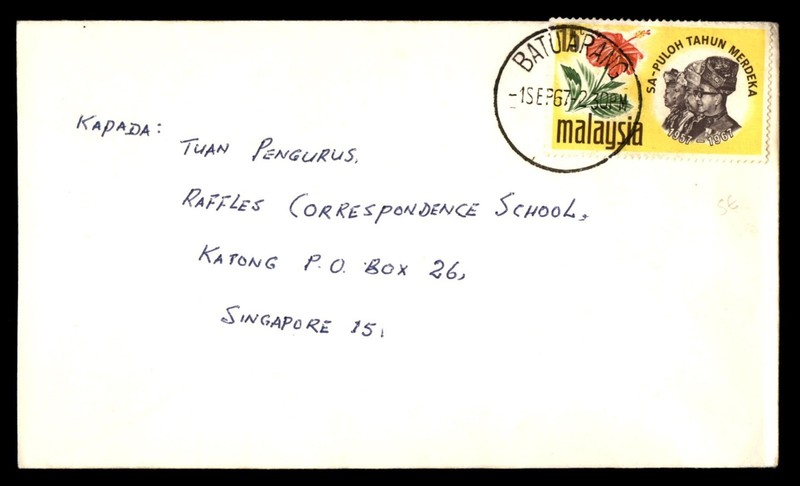 BATU ARANG
-1SEP67-2.30PM
15c
SA-PULOH TAHUN MERDEKA
malaysia
1957-1967
KAPADA:
TUAN PENGURUS.
RAFFLES CORRESPONDENCE SCHOOL,
KATONG P.O. BOX 26,
SINGAPORE 15.